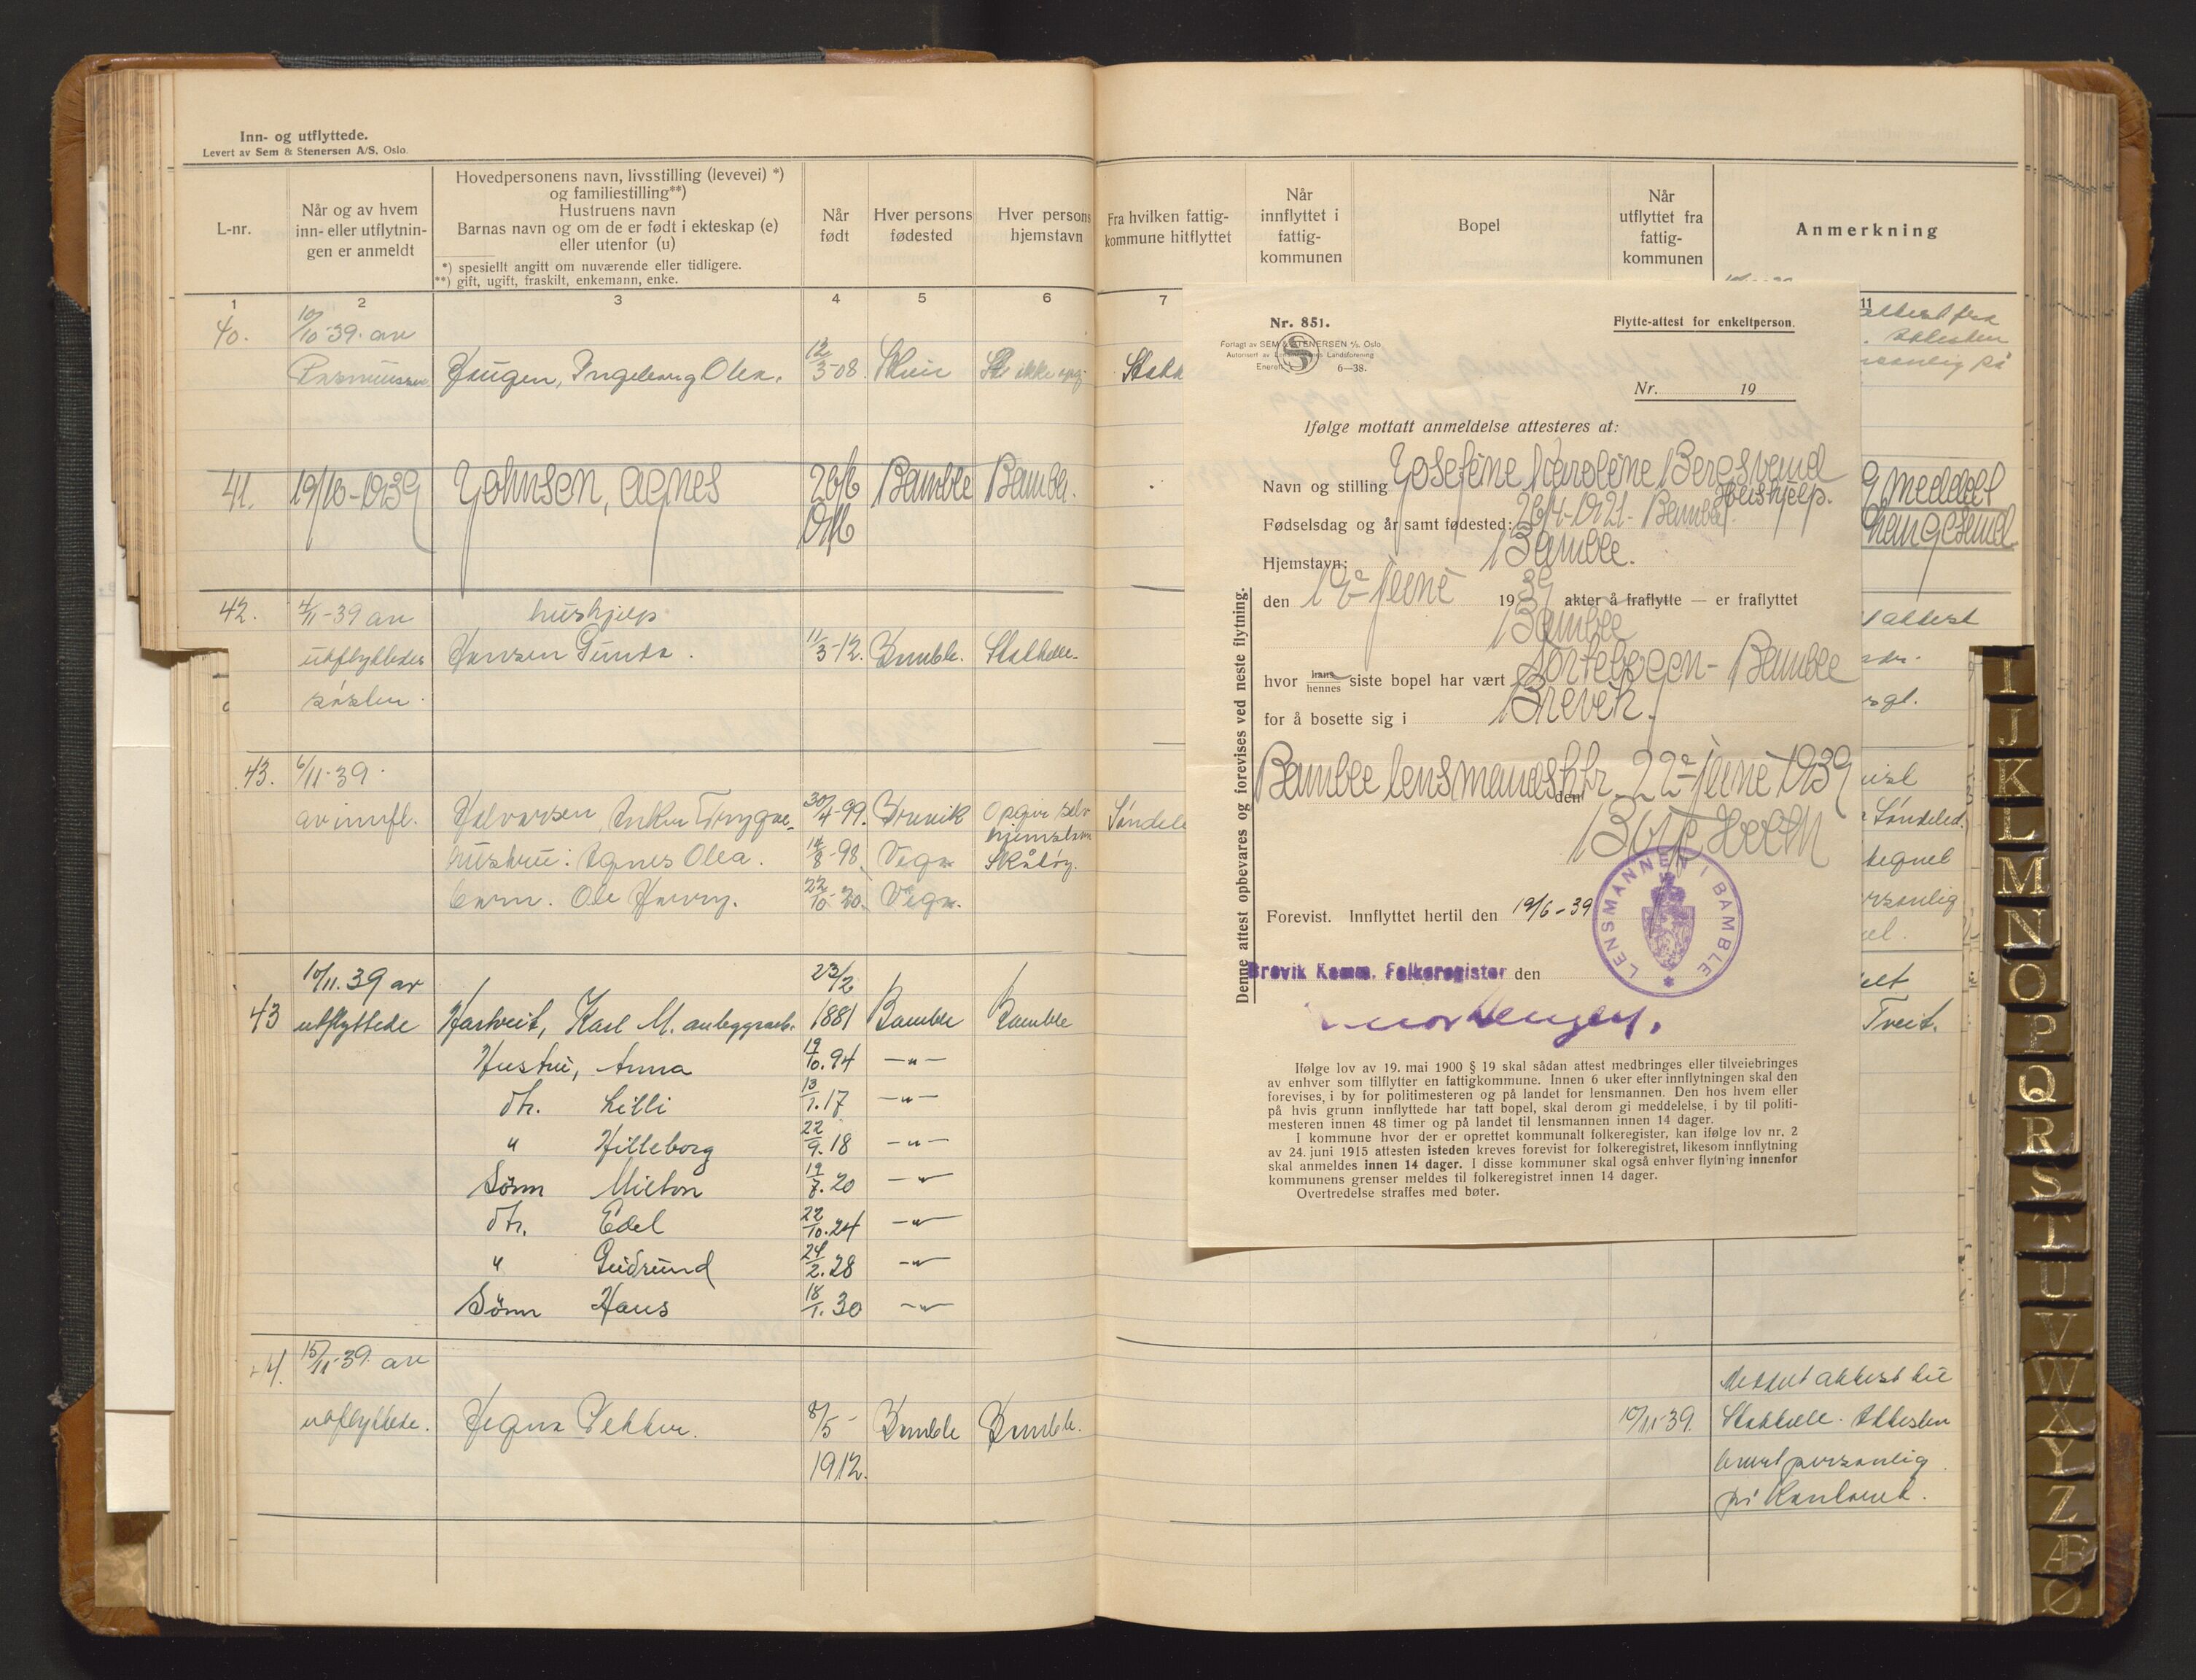 Inn- og utflyttede.
Levert av Sem & Stenersen A/S, Oslo.
L-nr.
Når og av hvem
inn- eller utflytnin-
gen er anmeldt
Hovedpersonens navn, livsstilling (levevei) *)
og familiestilling**)
Hustruens navn
Barnas navn og om de er født i ekteskap (e)
eller utenfor (u)
*) spesielt angitt om nuværende eller tidligere.
**) gift, ugift, fraskilt, enkemann, enke.
Når
født
Hver persons
fødested
Hver persons
hjemstavn
1 2 3 4 5 6
40. 10/10-39. av
Rasmussen Haugen, Ingeborg Olea. 12/3-08.
41. 19/10-1939 Johnsen, Agnes 26/6 Bamble Bamble.
42. 4/11-39 av hushjelp
utflyttedes Hansen Gunda. 11/3-12. Bamble. Stathelle.
søster.
43. 6/11-39.
av innfl. Halvorsen, Anker Trygve. 30/4-99. Brevik Opgir selv
hjemstavn
hustru: Agnes Olea. 14/8-98. Skåtøy.
barn. Ole Harry. 22/10-20.
10/11.39 av 23/2
43 utflyttede Hartveit, Karl M. anleggsarb. 1881 Bamble Bamble
Hustru, Anna 19/10.94 —"—
dtr. Lilli 13/1.17 —"—
" Hilleborg 22/9.18 —"—
Sönn Milton 19/7.20 —"—
dtr. Edel 22/10.24 —"—
" Gudrund 24/2.28 —"—
Sönn Hans 18/1.30 —"—
15/11-39. av
utflyttede. Hegna Petter. 8/5- Bamble Bamble.
1912.
Fra hvilken fattig-
kommune hitflyttet
Når
innflyttet i
fattig-
kommunen
Bopel
Når
utflyttet fra
fattig-
kommunen
Anmerkning
7 11
attest fra
. Attesten
på
Stath
meddel
attest
Søndele
Søndeled.
Tveit.
Meddelt attest til
10/11-39. Stathelle. Attesten
hentet personlig
på kontoret.
Nr. 851.
Forlagt av SEM & STENERSEN A/S, Oslo
Autorisert av Lensmennenes Landsforening
Enerett 6—38.
Flytte-attest for enkeltperson.
Nr. 19
Ifølge mottatt anmeldelse attesteres at:
Navn og stilling Josefine Karoline Bergsvend
Hushjelp.
Fødselsdag og år samt fødested: 26/4-1921- Bamble.
Hjemstavn: Bamble.
den 19de juni 1939 akter å fraflytte — er fraflyttet
Bamble
hvor hans/hennes siste bopel har vært Sortebogen - Bamble
for å bosette sig i Brevik.
Bamble lensmannsktr. den 22de juni 1939
Forevist. Innflyttet hertil den 19/6-39
LENSMANNEN I BAMBLE
Brevik Komm. Folkeregister den
Denne attest opbevares og forevises ved neste flytning.
Ifølge lov av 19. mai 1900 § 19 skal sådan attest medbringes eller tilveiebringes
av enhver som tilflytter en fattigkommune. Innen 6 uker efter innflytningen skal den
forevises, i by for politimesteren og på landet for lensmannen. Den hos hvem eller
på hvis grunn innflyttede har tatt bopel, skal derom gi meddelelse, i by til politi-
mesteren innen 48 timer og på landet til lensmannen innen 14 dager.
I kommune hvor der er oprettet kommunalt folkeregister, kan ifølge lov nr. 2
av 24. juni 1915 attesten isteden kreves forevist for folkeregistret, likesom innflytning
skal anmeldes innen 14 dager. I disse kommuner skal også enhver flytning innenfor
kommunens grenser meldes til folkeregistret innen 14 dager.
Overtredelse straffes med bøter.
I
J
K
L
M
N
O
P
Q
R
S
T
U
V
W
X
Y
Z
Æ
Ø